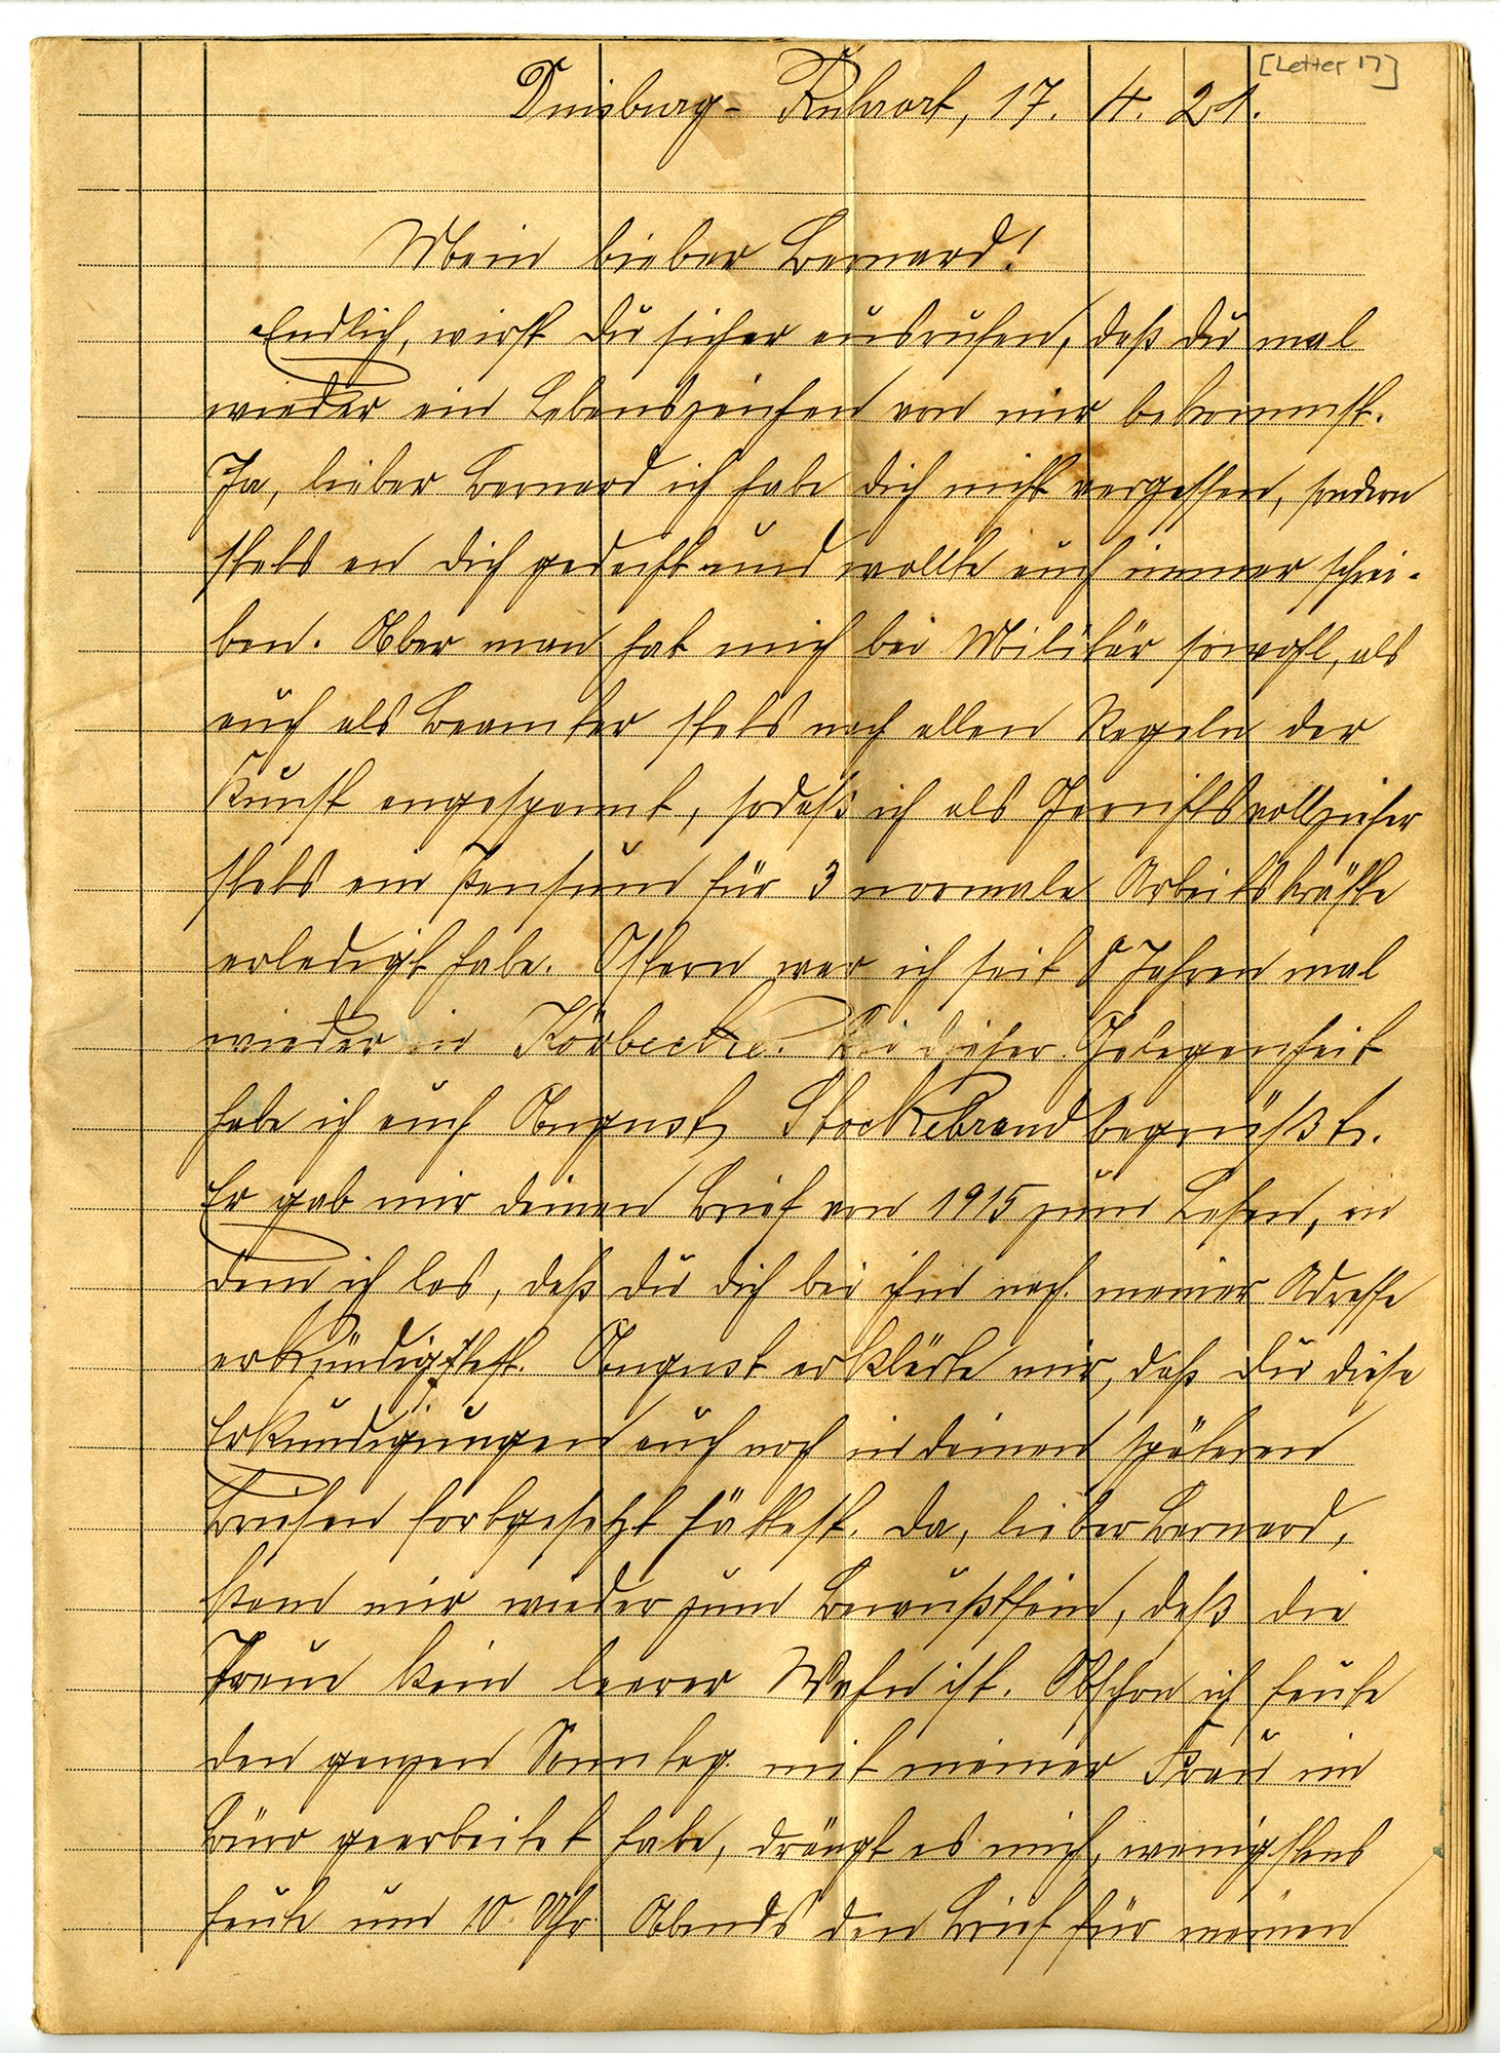 [Letter 17]
Duisburg-Ruhrort, 17. 4. 21.
Mein lieber Bernard!
Endlich, wirst du sicher ausrufen, daß du mal
wieder ein Lebenszeichen von mir bekommst.
Ja, lieber Bernard ich habe dich nicht vergessen, sondern
stets an dich gedacht und wollte auch immer schrei-
ben. Aber man hat mich bei Militär sowohl, als
auch als Beamter stets nach allen Regeln der
Kunst angespannt, sodaß ich als Gerichtsvollzieher
stets ein Pensum für 3 normale Arbeitskräfte
erledigt habe. Ostern war ich seit 8 Jahren mal
wieder in Körbecke. Bei dieser Gelegenheit
habe ich auch August Stockebrand begrüßt.
Er gab mir deinen Brief von 1915 zum Lesen, in
dem ich las, daß du dich bei ihm nach meiner Adresse
erkundigtest. August erklärte mir, daß du diese
Erkundigungen auch noch in deinen späteren
Briefen fortgesetzt hättest. Da, lieber Bernard,
kam mir wieder zum Bewußtsein, daß die
Treue kein leerer Wahn ist. Obschon ich heute
den ganzen Sonntag mit meiner Frau im
Büro gearbeitet habe, drängt es mich, wenigstens
heute um 10 Uhr Abends den Brief für meinen